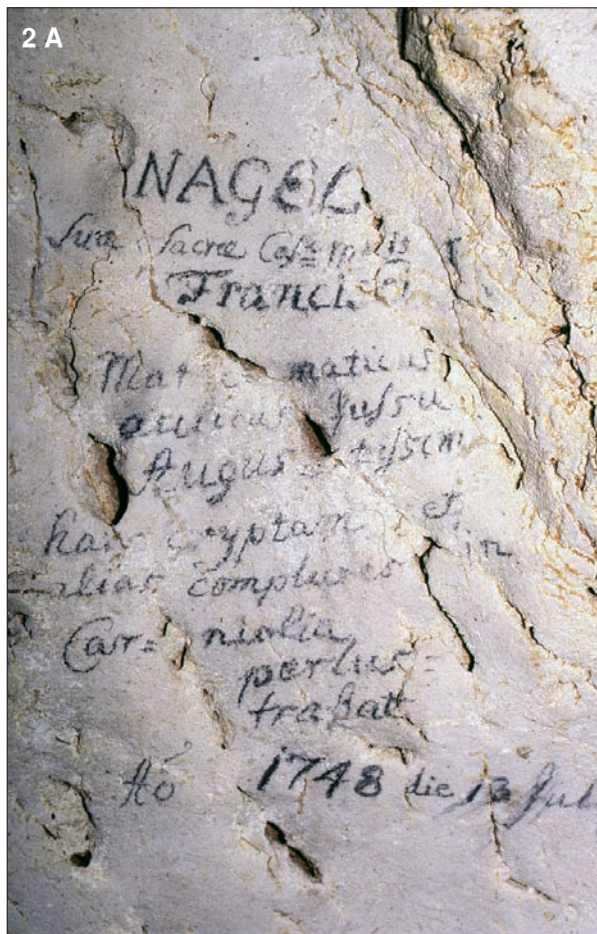 2 A
NAGEL
Suæ Sacræ
Francis
Mat maticus
aulicus Jussu
Augus tissim
hanc cryptam et
alias complures in
Car= niolia
perlus=
trabat
Aō 1748 die 13 Jul